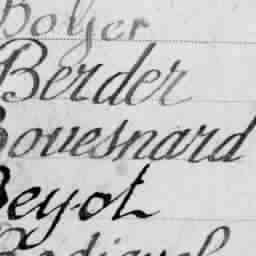 Boyer
Berder
Bouesnard
Beyot